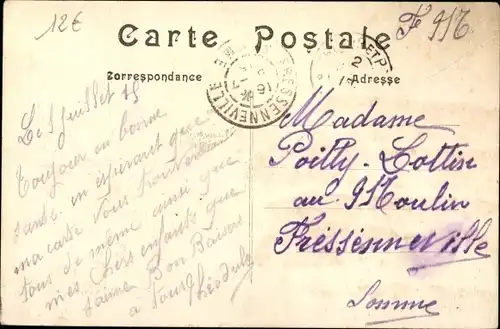 12€
F 916
Carte Postale
Correspondance
Adresse
FRESSENNEVILLE
Le 5 Juillet 15
Toujour en bonne
santé en espérant que
ma carte vous trouve
tous de même ainsi que
mes chers enfants que
j'aime Bon Baisers
a tous Théodule
Madame
Poilly-Cottin
au Moulin
Fressenneville
Somme